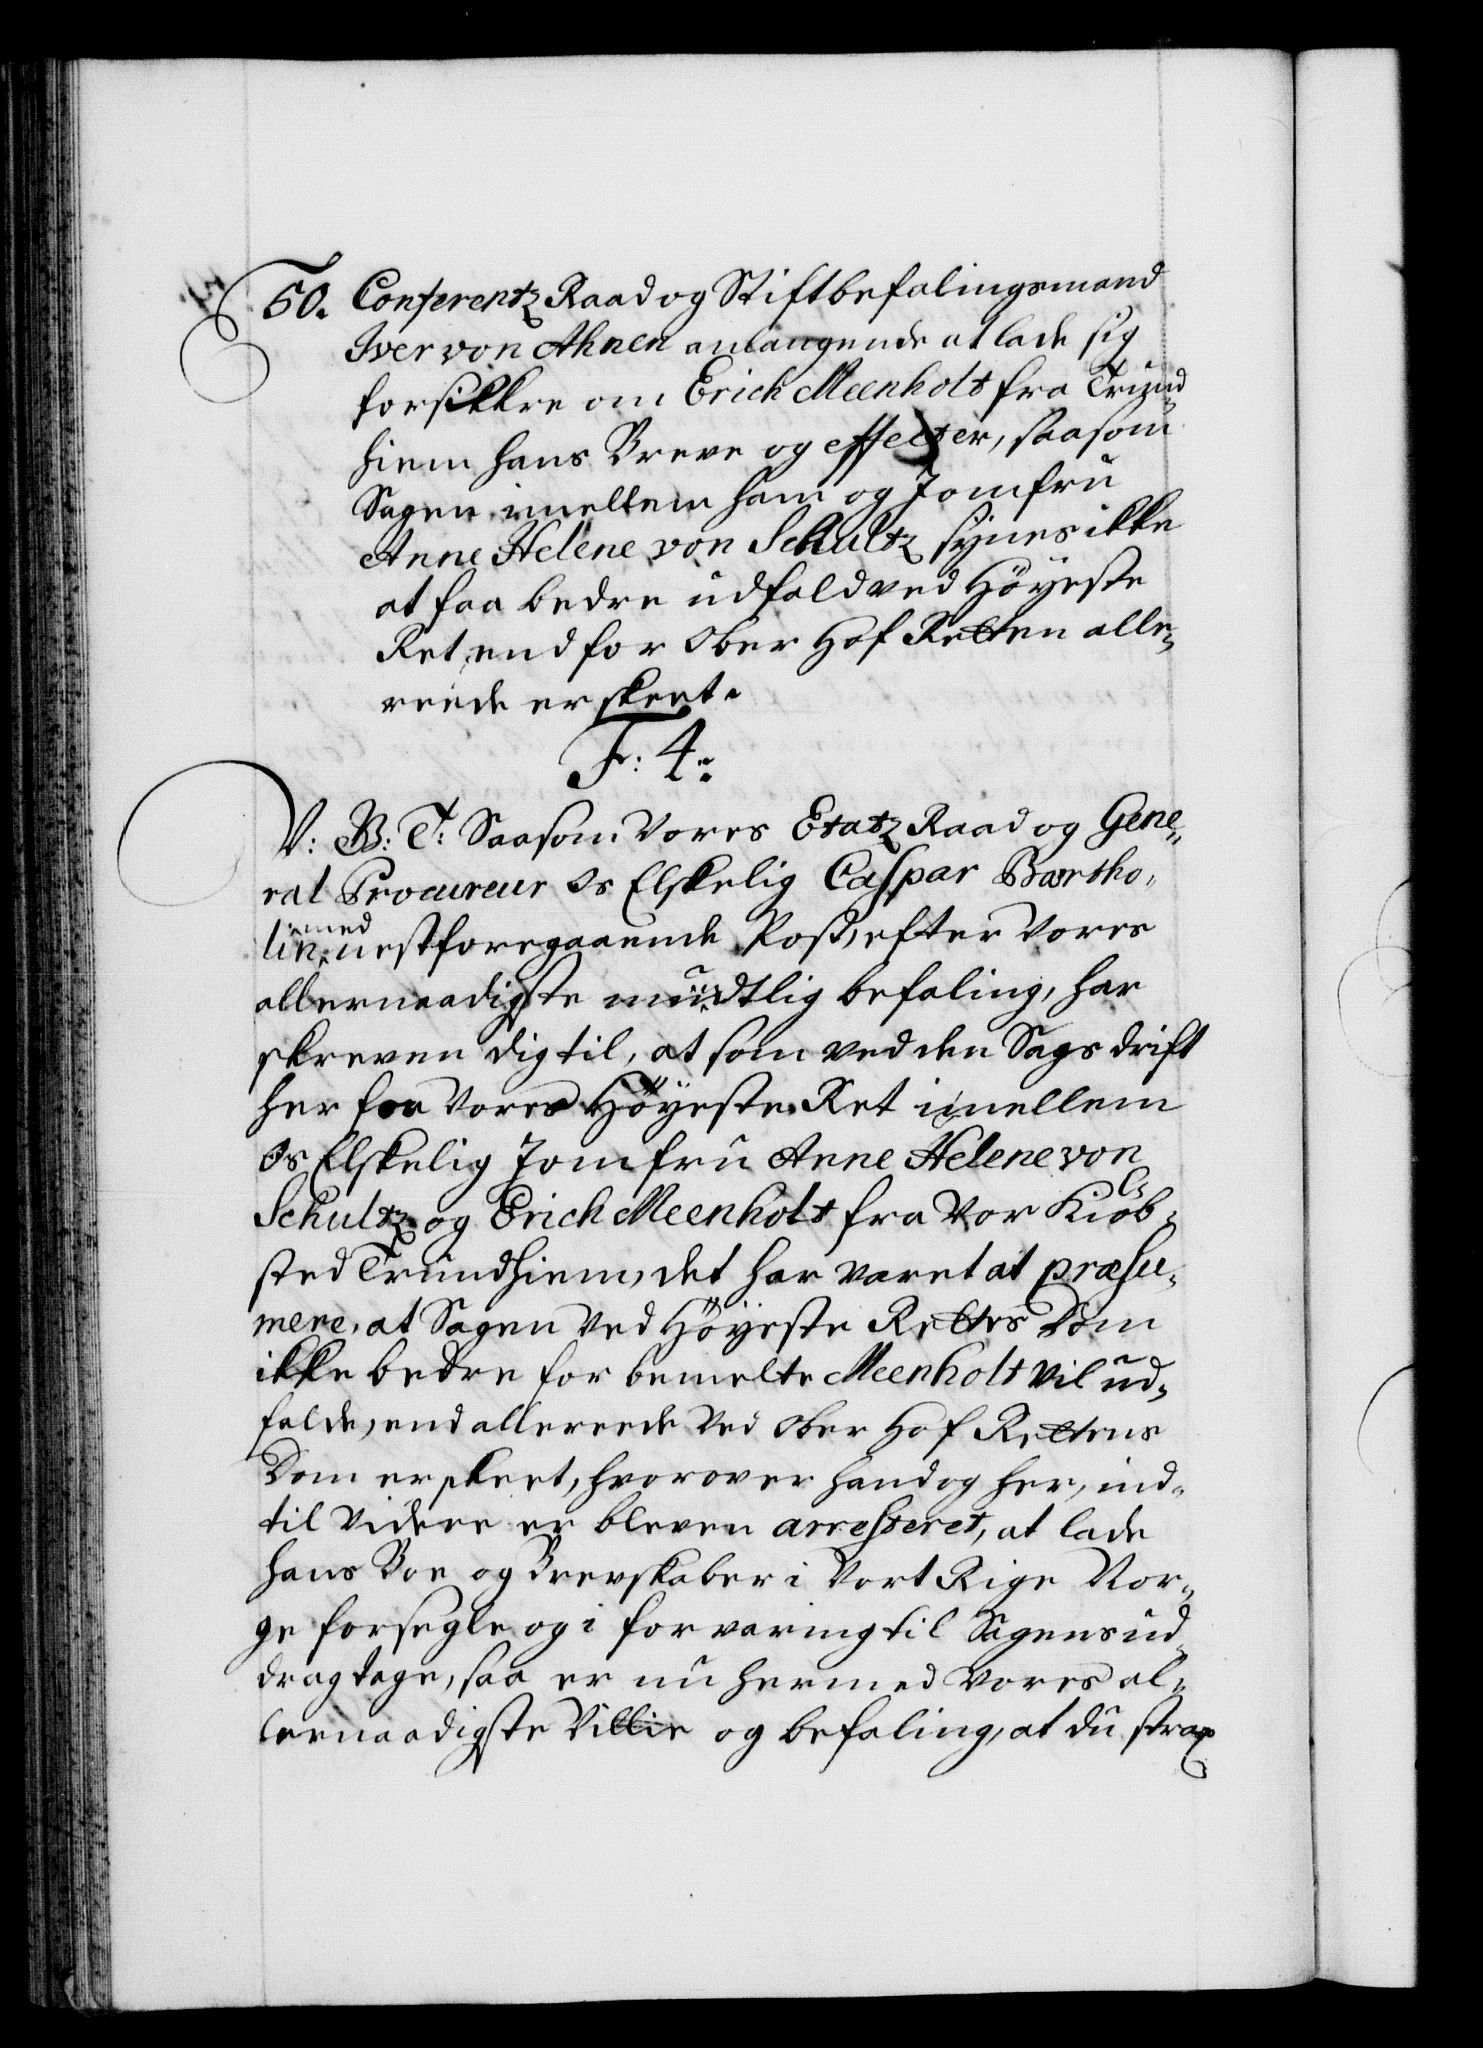 50. Conferentz Raad og Stiftbefalingsmand
Iver von Ahnen anlangende at lade sig
forsikkre om Erich Meenholt fra Trund-
hiem hans Breve og effecter, saasom
Sagen imellem ham og Jomfru
Anne Helene von Schultz synes ikke
at faa bedre udfald ved Höyeste
Ret, end for Ober Hof Retten alle-
reede er skeet.
F: 4.
V: B: T: Saasom Vores Etatz Raad og Gene-
ral Procureur Os Elskelig Caspar Bartho-
lin, med nestforegaaende Post, efter Vores
allernaadigste mundtlig befaling, har
skreven dig til, at som ved den Sags drift
her for Vores Höyeste Ret imellem
Os Elskelig Jomfru Anne Helene von
Schultz og Erich Meenholt fra Vor Kiöb-
sted Trundhiem, det har været at præsu-
mere, at Sagen ved Höyeste Rettes Dom
ikke bedre for bemelte Meenholt vil ud-
falde, end allereede ved Ober Hof Rettens
Dom er skeet, hvorover hand og her, ind-
til videre er bleven arresteret, at lade
hans Boe og Brevskaber i Vort Rige Nor-
ge forsegle og i forvaring til Sagens ud-
drag tage, saa er nu hermed Vores al-
lernaadigste Villie og befaling, at du strax